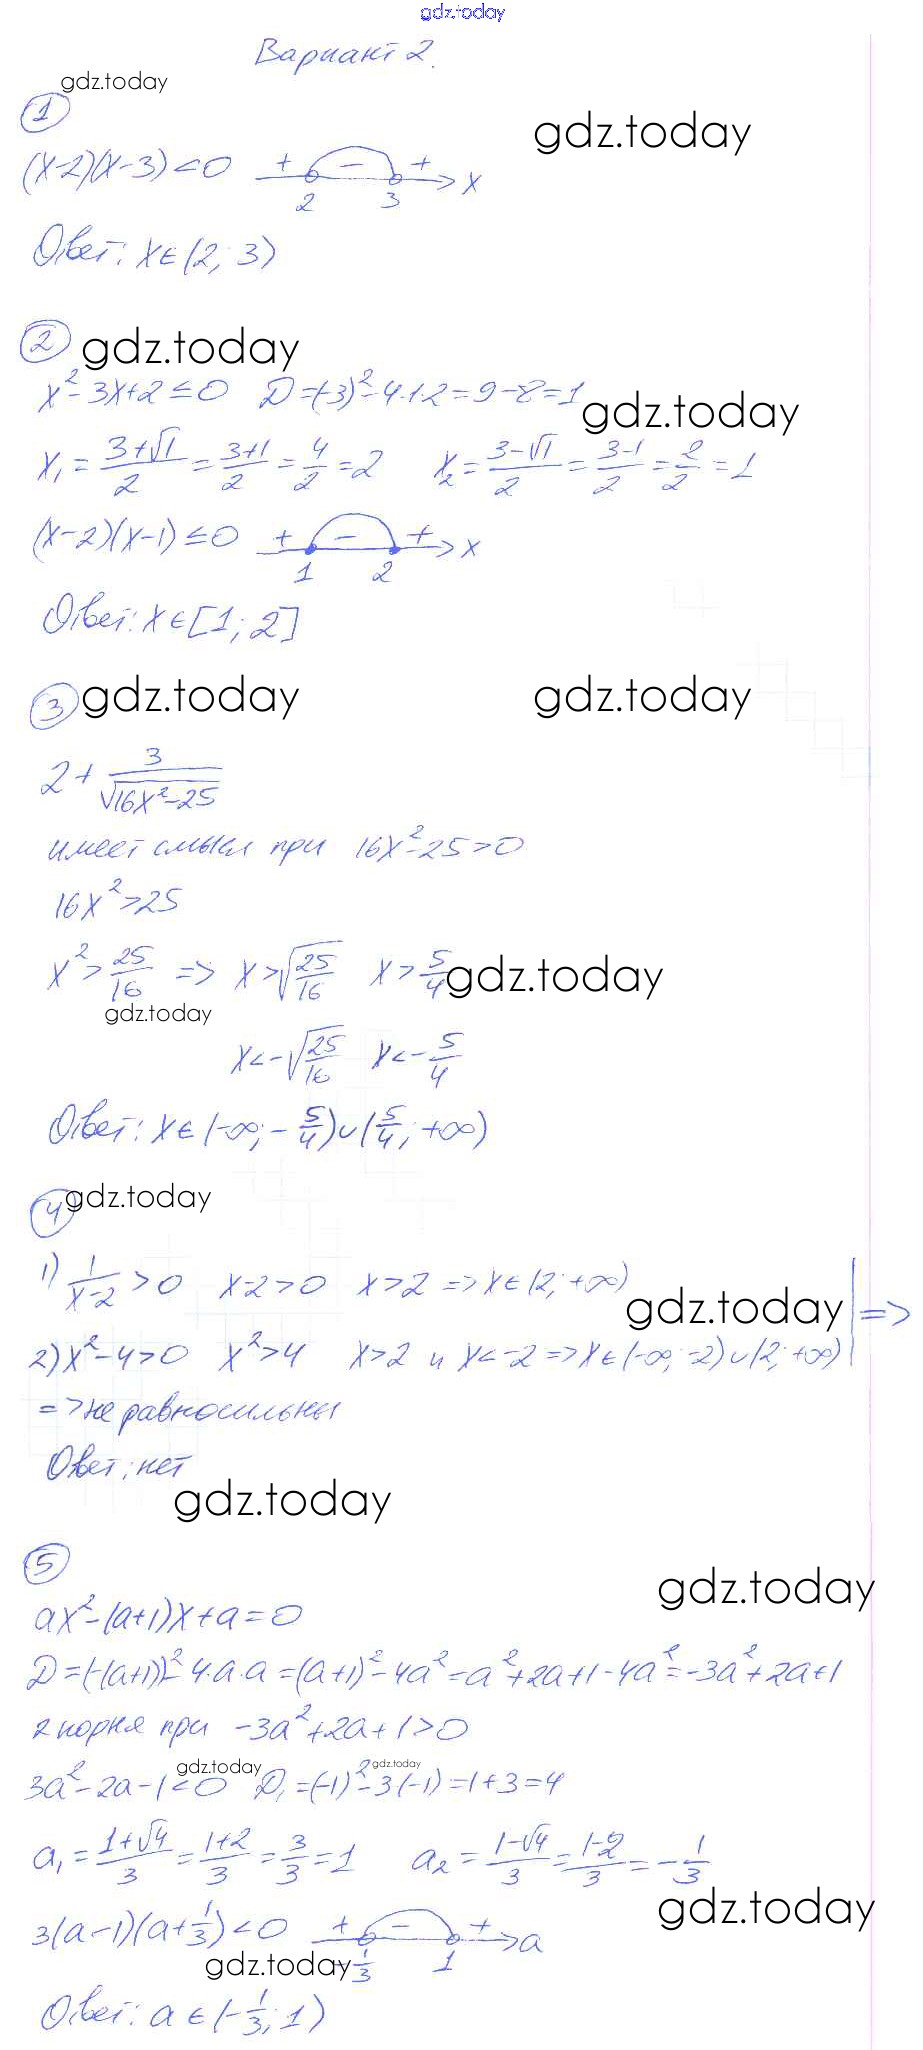 gdz.today
Вариант 2.
gdz.today
1
gdz.today
(x-2)(x-3)<0 + - + x
2 3
Ответ: x∈(2; 3)
2 gdz.today
x²-3x+2≤0 D=(-3)²-4·1·2=9-8=1
gdz.today
x₁=(3+√1)/2=(3+1)/2=4/2=2 x₂=(3-√1)/2=(3-1)/2=2/2=1
(x-2)(x-1)≤0 + - + x
1 2
Ответ: x∈[1; 2]
3 gdz.today gdz.today
2+3/√(16x²-25)
имеет смысл при 16x²-25>0
16x²>25
x²>25/16 => x>√(25/16) x>5/4 gdz.today
gdz.today
x<-√(25/16) x<-5/4
Ответ: x∈(-∞; -5/4)∪(5/4; +∞)
4 gdz.today
1) 1/(x-2)>0 x-2>0 x>2 => x∈(2; +∞) gdz.today | =>
2) x²-4>0 x²>4 x>2 и x<-2 => x∈(-∞; -2)∪(2; +∞)
=> не равносильны
Ответ: нет
gdz.today
5
gdz.today
ax²-(a+1)x+a=0
D=(-(a+1))²-4·a·a=(a+1)²-4a²=a²+2a+1-4a²=-3a²+2a+1
2 корня при -3a²+2a+1>0
gdz.today gdz.today
3a²-2a-1<0 D₁=(-1)²-3(-1)=1+3=4
a₁=(1+√4)/3=(1+2)/3=3/3=1 a₂=(1-√4)/3=(1-2)/3=-1/3
gdz.today
3(a-1)(a+1/3)<0 + - + a
gdz.today -1/3 1
Ответ: a∈(-1/3; 1)